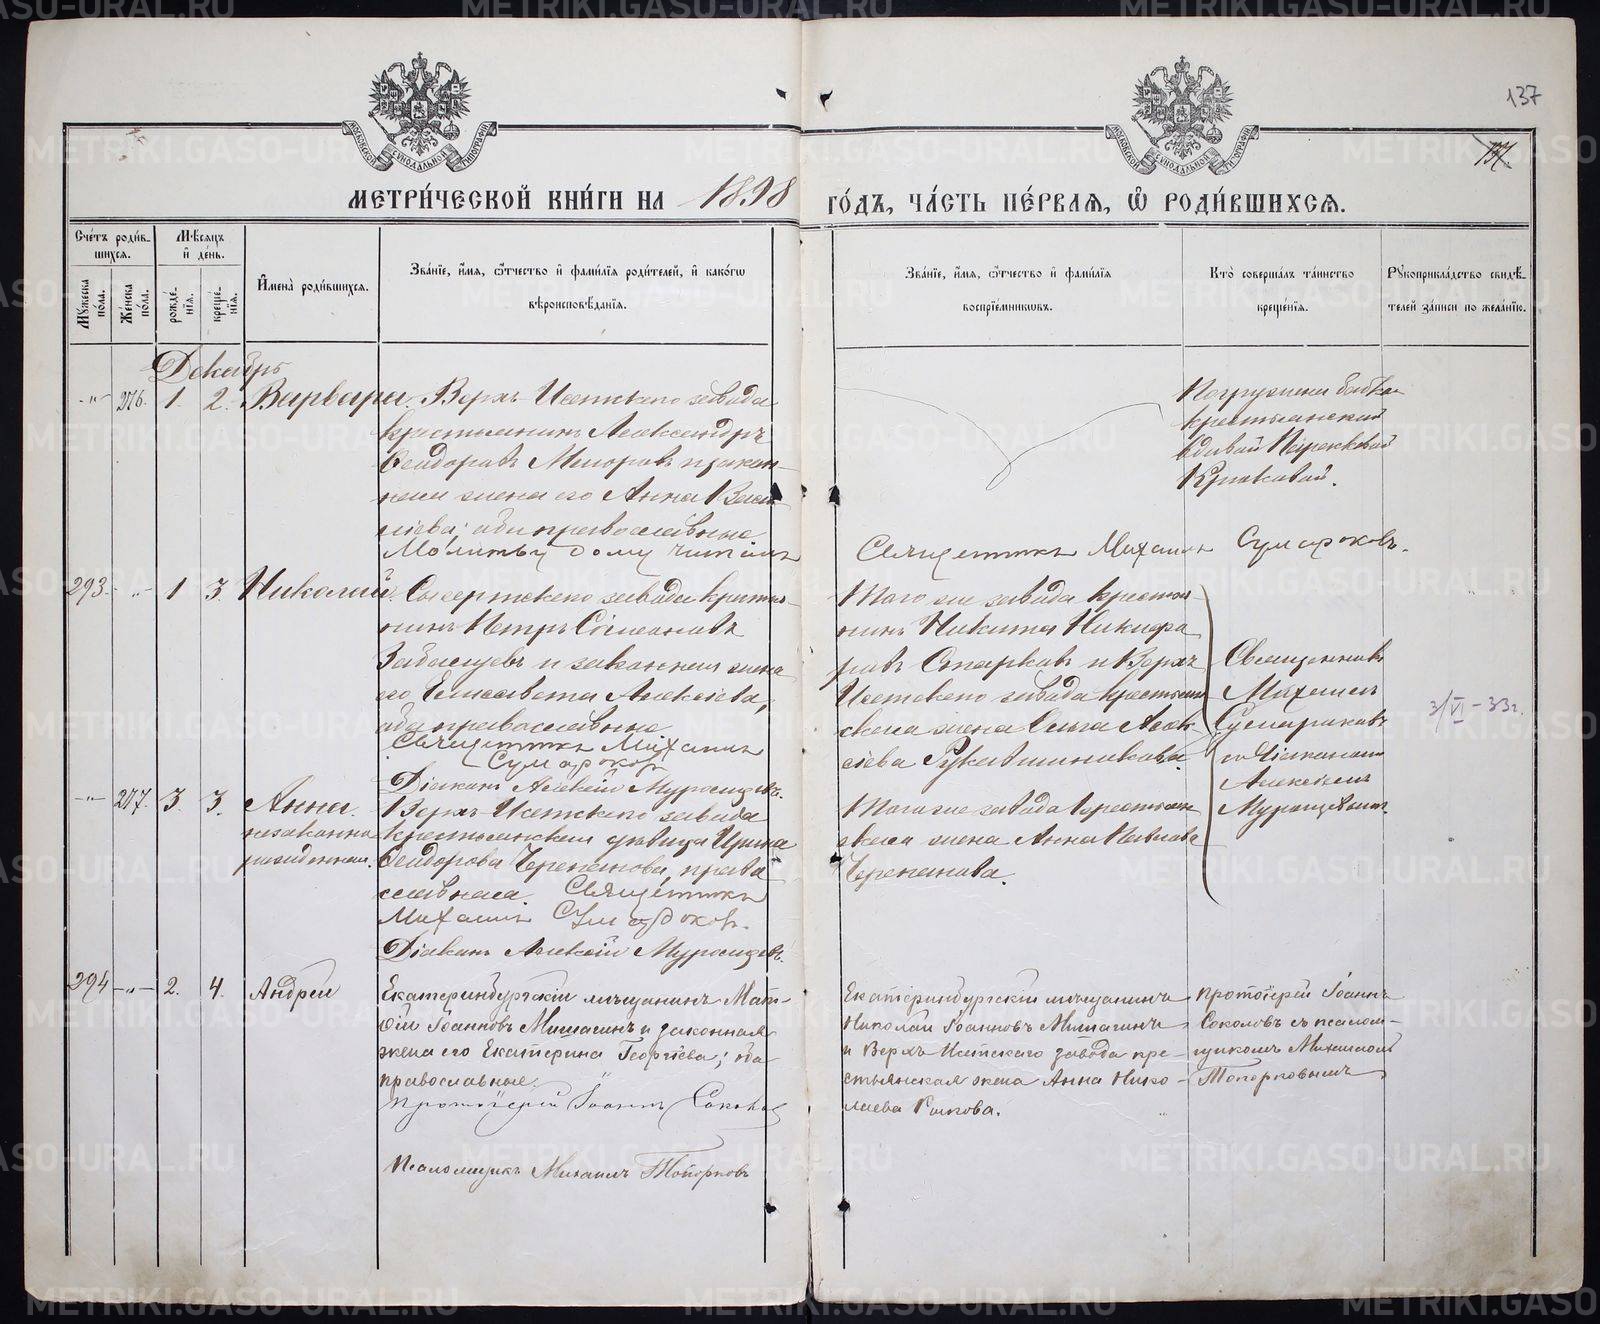 137
137.
МОСКОВСКОЙ СѴНОДАЛЬНОЙ ТИПОГРАФІИ
МОСКОВСКОЙ СѴНОДАЛЬНОЙ ТИПОГРАФІИ
МЕТРИ́ЧЕСКОЙ КНИ́ГИ НА 1898 ГО́ДЪ, ЧА́СТЬ ПЕ́РВАЯ, Ѡ РОДИ́ВШИХСЯ.
Сче́тъ роди́вшихся.
Мꙋжеска по́ла.
Же́нска по́ла.
Мѣсяцъ и де́нь.
рожде́нїя.
креще́нїя.
Имена̀ роди́вшихся.
Зва́нїе, и́мя, ѻ́тчество и фами́лїя роди́телей, и како́гѡ вѣроисповѣ́данїя.
Зва́нїе, и́мя, ѻ́тчество и фами́лїя воспрїе́мникѡвъ.
Кто̀ соверша́лъ та́инство креще́нїя.
Рꙋкоприкла́дство свидѣ́телей за́писи по жела́нїю.
Декабрь
-"- 276. 1. 2. Варвара. Верхъ-Исетскаго завода
крестьянинъ Александръ
Феодоровъ Миноровъ и закон-
ная жена его Анна Васи-
лiева; оба православные.
Молитву дому читалъ
Погружена бабкою
крестьянской
вдовой
Крюковой.
Священникъ Михаилъ Сумароковъ.
293. -"- 1 3 Николай. Сысертскаго завода крестья-
нинъ Петръ Симеоновъ
и законная жена
его Елисавета Алексiева,
оба православные
Священникъ Михаилъ
Сумароковъ
Дiаконъ Алексiй
Того же завода крестья-
нинъ Никита Никифо-
ровъ Старковъ и Верхъ-
Исетскаго завода крестьян-
ская жена Ольга Алек-
сiева Рукавишникова.
Священникъ
Михаилъ
Сумароковъ
съ Дiакономъ
Алексiемъ
3/VI-33г.
-"- 277. 3. 3. Анна.
незаконно
рожденная.
Верхъ-Исетскаго завода
крестьянская дѣвица Ирина
Феодорова Черепанова, право-
славная. Священникъ
Михаилъ Сумароковъ.
Дiаконъ Алексiй
Того же завода крестьян-
ская жена Анна Павлова
Черепанова.
294 -"- 2. 4. Андрей
Екатеринбургскiй мѣщанинъ Мат-
ѳiй Iоанновъ Мишагинъ и законная
жена его Екатерина Георгiева; оба
православные.
Протоiерей Iоаннъ Соколовъ
Псаломщикъ Михаилъ Топорковъ
Екатеринбургскiй мѣщанинъ
Николай Iоанновъ Мишагинъ
и Верхъ-Исетскаго завода кре-
стьянская жена Анна Нико-
лаева
Протоiерей Iоаннъ
Соколовъ съ псалом-
щикомъ Михаиломъ
Топорковымъ
METRIKI.GASO-URAL.RU